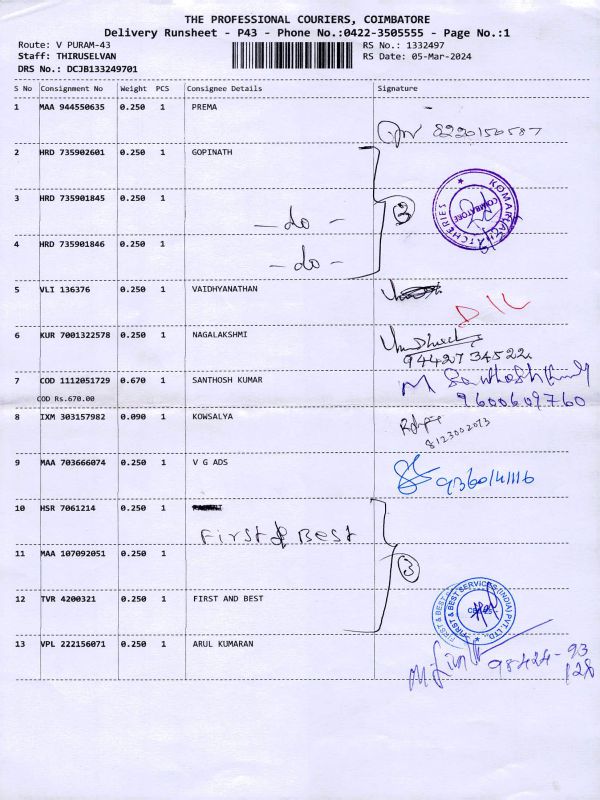 THE PROFESSIONAL COURIERS, COIMBATORE
Delivery Runsheet - P43 - Phone No.:0422-3505555 - Page No.:1
Route: V PURAM-43 RS No.: 1332497
Staff: THIRUSELVAN RS Date: 05-Mar-2024
DRS No.: DCJB133249701
S No Consignment No Weight PCS Consignee Details Signature
1 MAA 944550635 0.250 1 PREMA
8220150587
2 HRD 735902601 0.250 1 GOPINATH
3 HRD 735901845 0.250 1
- do -
3
COIMBATORE
4 HRD 735901846 0.250 1
- do -
5 VLI 136376 0.250 1 VAIDHYANATHAN
D/L
6 KUR 7001322578 0.250 1 NAGALAKSHMI
9442734522
7 COD 1112051729 0.670 1 SANTHOSH KUMAR
M Santhosh
COD Rs.670.00
9600609760
8 IXM 303157982 0.090 1 KOWSALYA
8123002013
9 MAA 703666074 0.250 1 V G ADS
10 HSR 7061214 0.250 1
First & Best
11 MAA 107092051 0.250 1
3
12 TVR 4200321 0.250 1 FIRST AND BEST
FIRST & BEST SERVICES (INDIA) PVT. LTD.
13 VPL 222156071 0.250 1 ARUL KUMARAN
98424-93
128